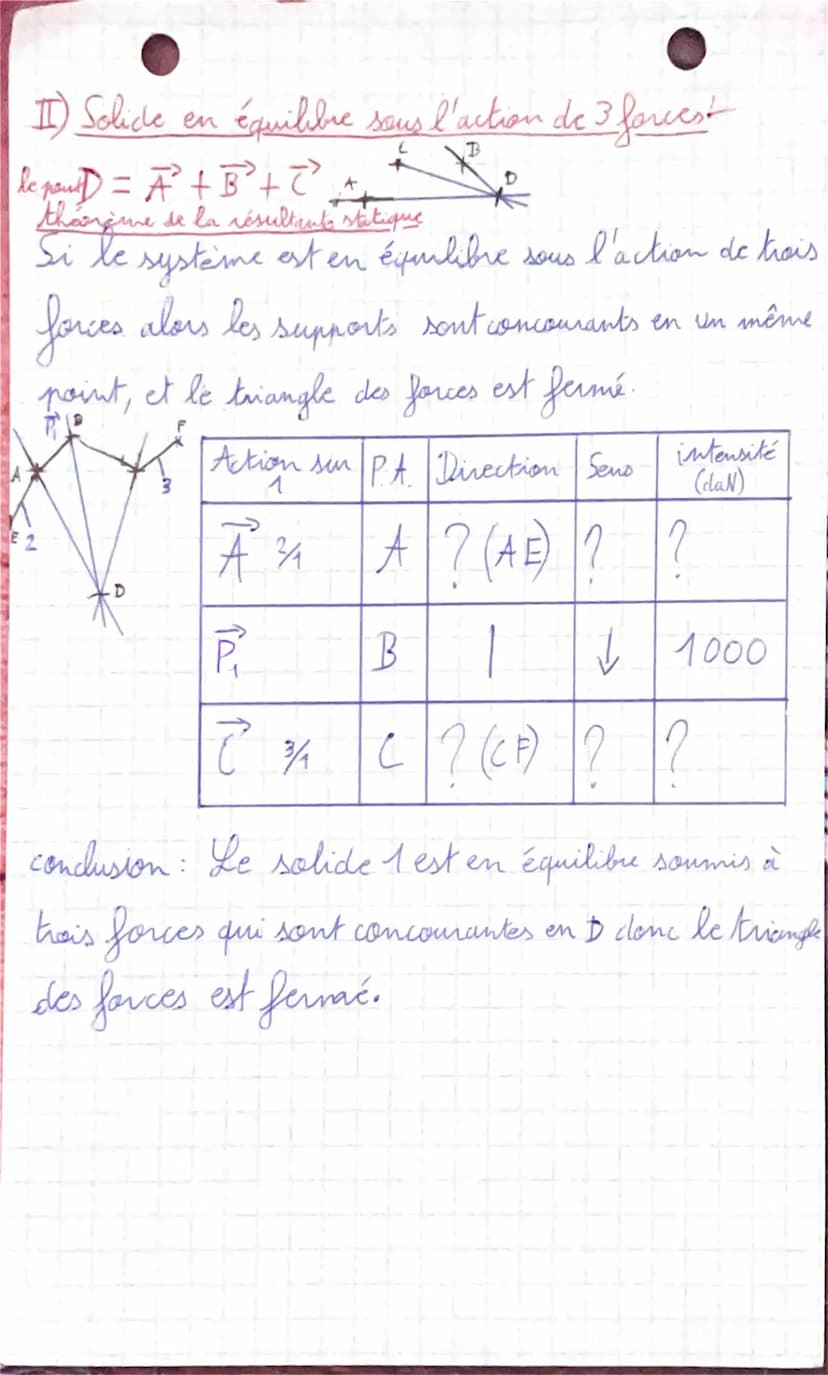 II) Solide en équilibre sous l'action de 3 forces:
le point D = A + B + C
A C B D
théorème de la résultante statique
Si le système est en équilibre sous l'action de trois
forces alors les supports sont concourants en un même
point, et le triangle des forces est fermé.
P1 B F
A 3
E 2
D
Action sur 1 P.A. Direction Sens intensité (daN)
A 2/1 A ? (AE) ? ?
P1 B | ↓ 1000
C 3/1 C ? (CF) ? ?
conclusion : Le solide 1 est en équilibre soumis à
trois forces qui sont concourantes en D donc le triangle
des forces est fermé.